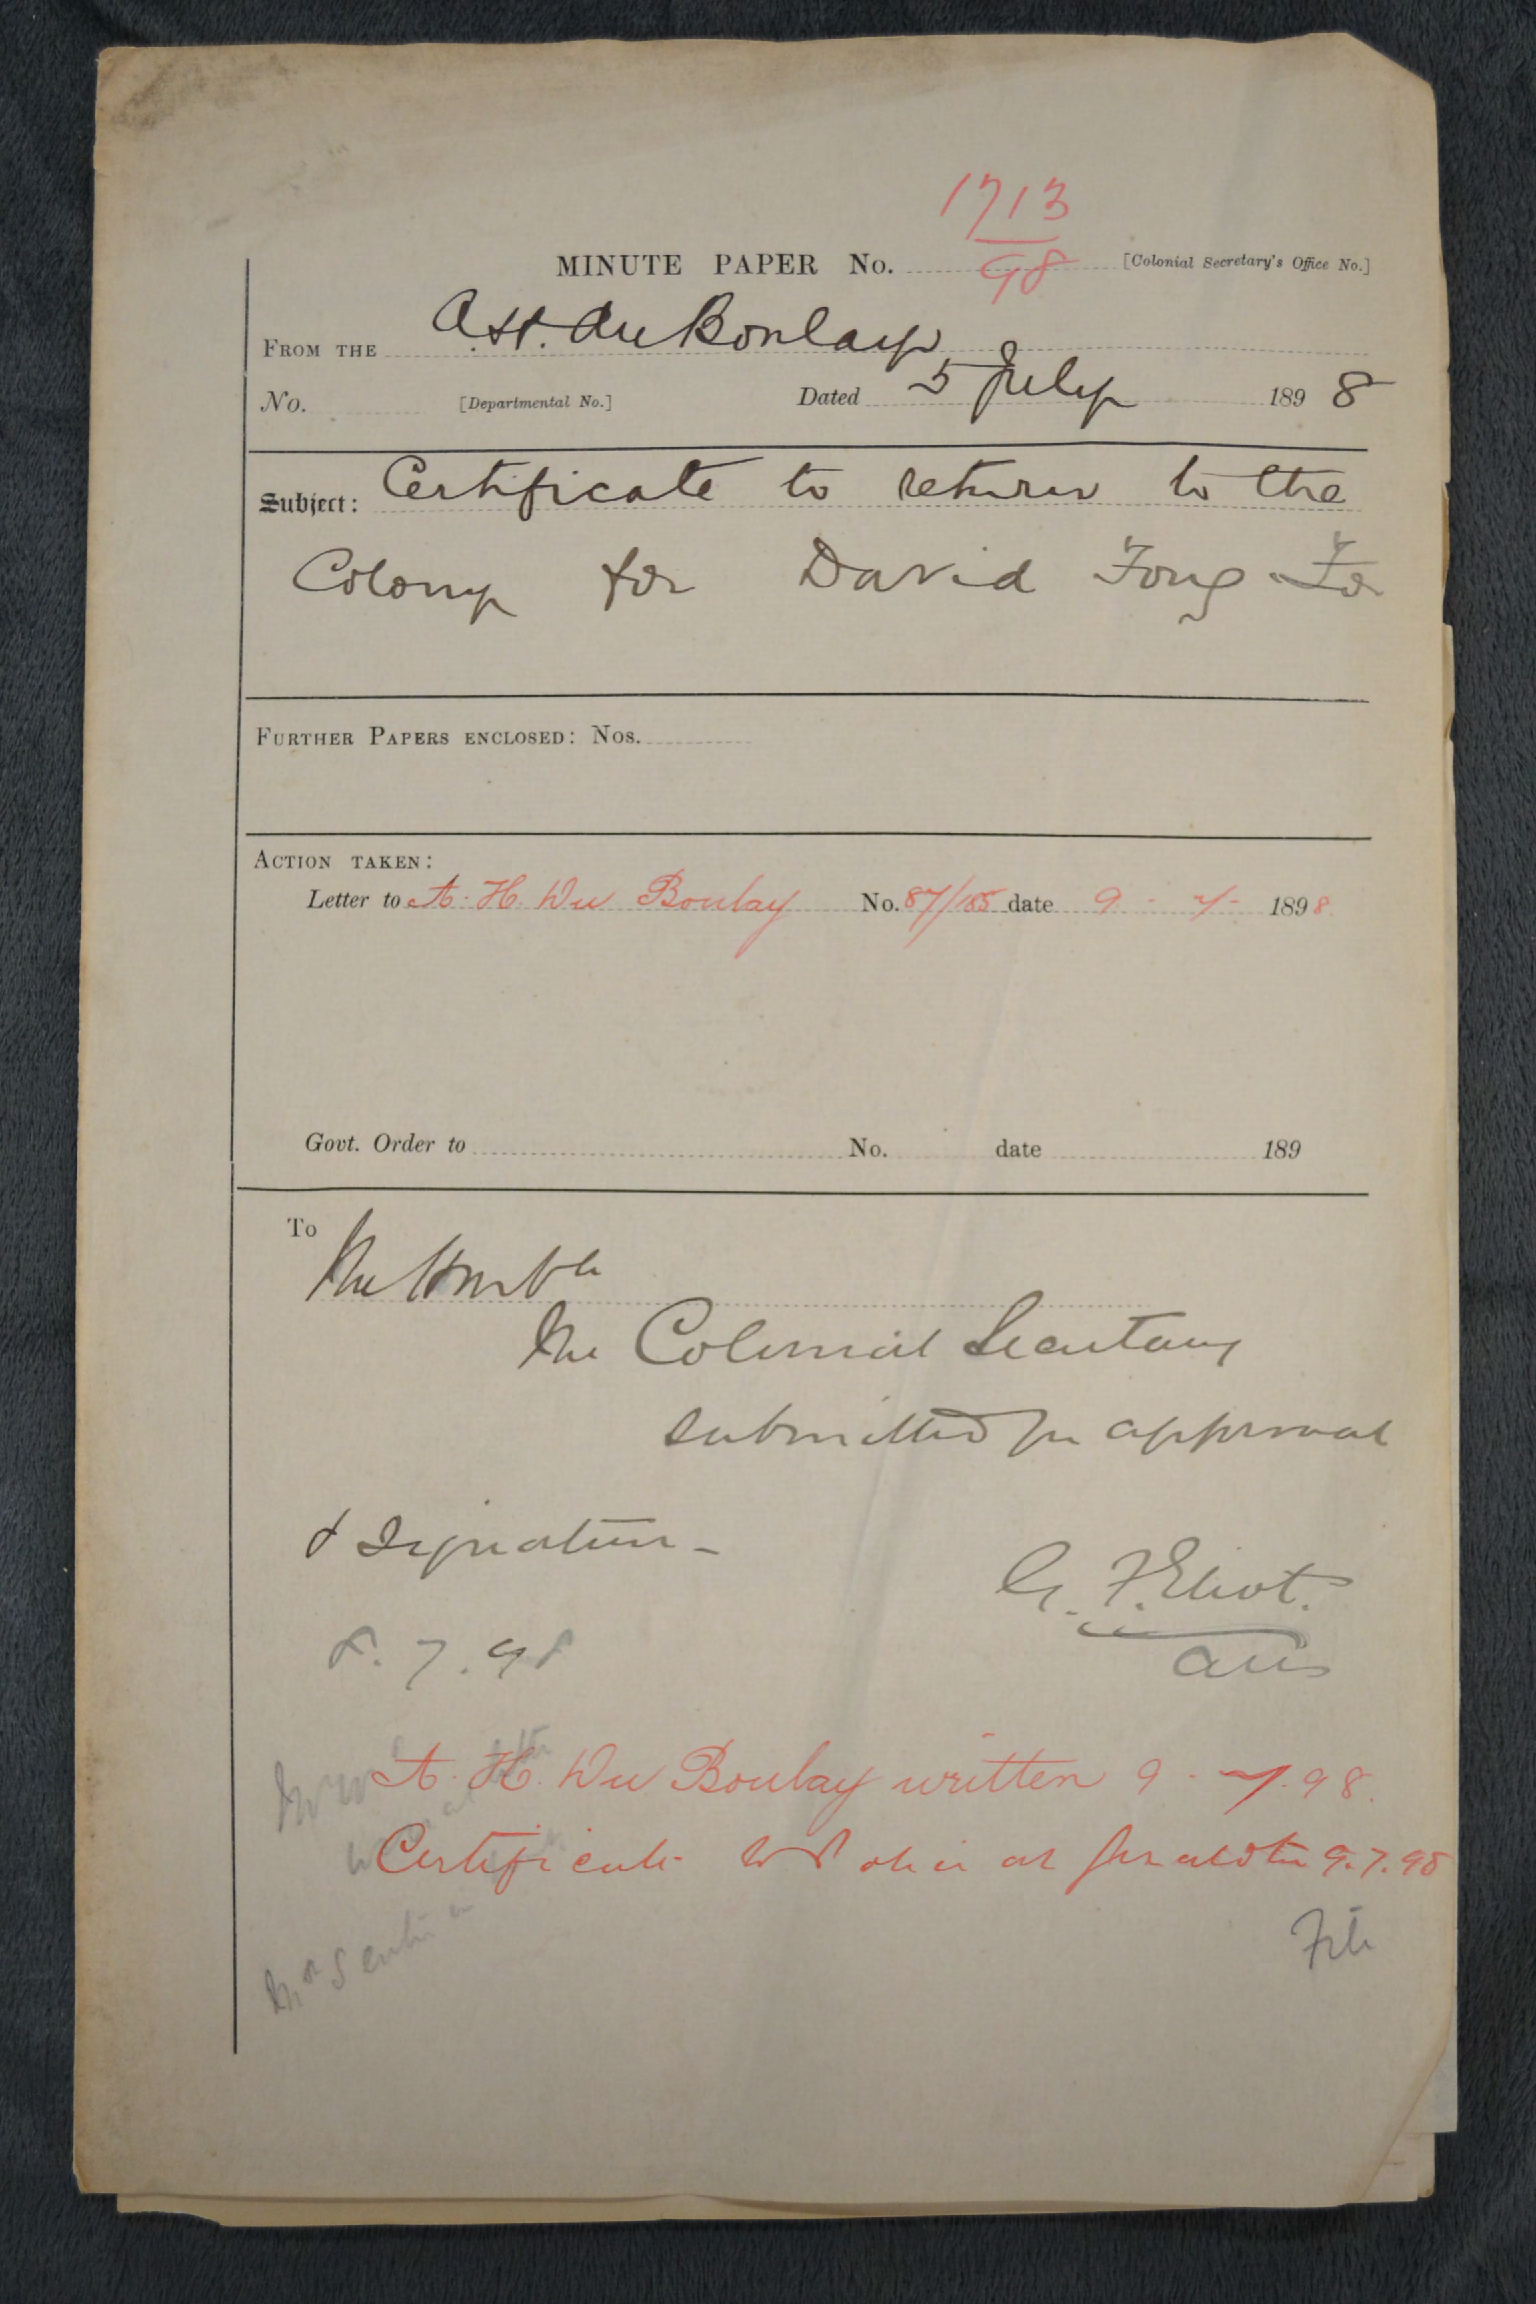 1713
MINUTE PAPER No. 98 [Colonial Secretary's Office No.]
FROM THE A.H. du Boulay
No. [Departmental No.] Dated 5 July 1898
Subject: Certificate to return to the
Colony for David Fong Fo
FURTHER PAPERS ENCLOSED: Nos.
ACTION TAKEN:
Letter to A. H. Du Boulay No. 87/185 date 9 - 7 - 1898
Govt. Order to No. date 189
To
The Honble
The Colonial Secretary
Submitted for approval
& Signature -
G. F. Eliot.
8. 7. 98
A. H. Du Boulay written 9 . 7. 98.
Certificate 9.7.98
File